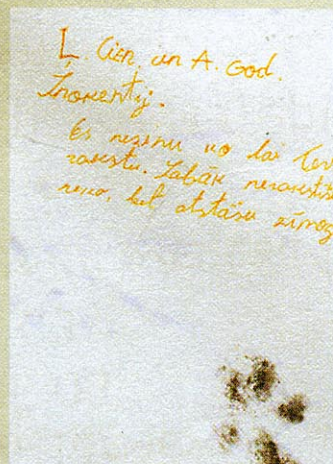 Ļ. Cien. un A. God.
Inokentij.
Es nezinu ko lai Tev
rakstu. Labāk nerakstīš
neko, bet atstāšu zīmog